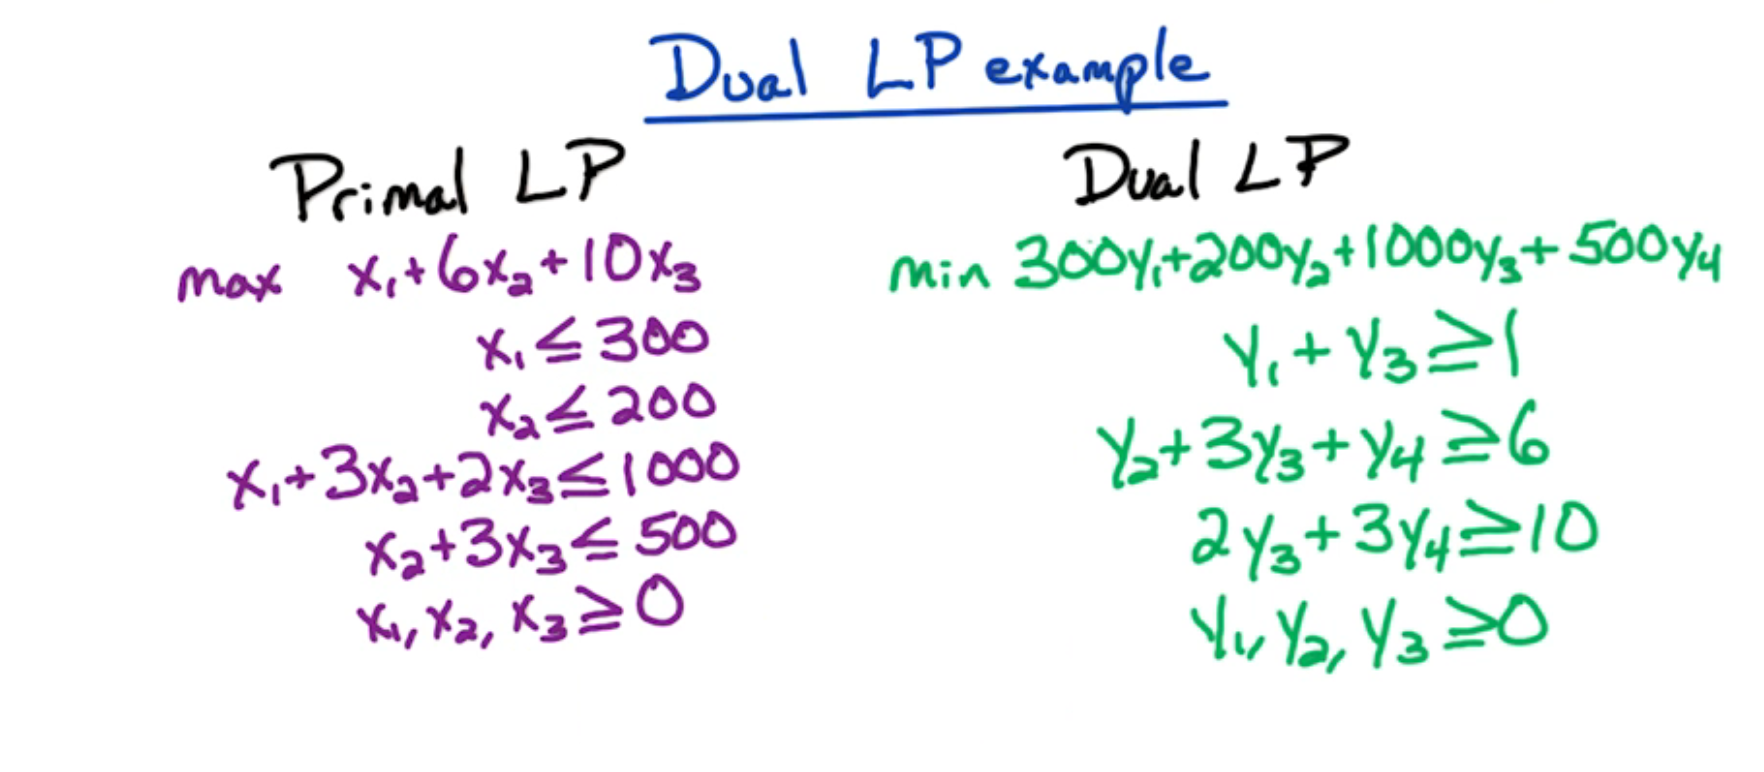 Dual LP example
Primal LP
max x₁+6x₂+10x₃
x₁≤300
x₂≤200
x₁+3x₂+2x₃≤1000
x₂+3x₃≤500
x₁,x₂,x₃≥0
Dual LP
min 300y₁+200y₂+1000y₃+500y₄
y₁+y₃≥1
y₂+3y₃+y₄≥6
2y₃+3y₄≥10
y₁,y₂,y₃≥0